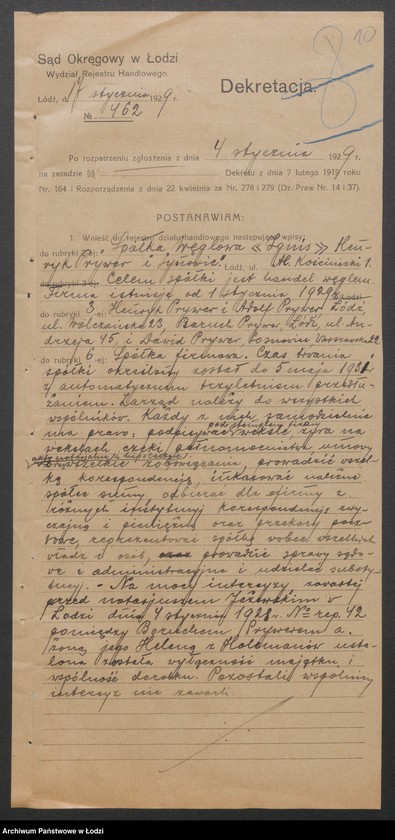 10
Sąd Okręgowy w Łodzi
Wydział Rejestru Handlowego.
Łódź, d. 17 stycznia 1929 r.
№ 462
Dekretacja.
Po rozpatrzeniu zgłoszenia z dnia 4 stycznia 1929 r.
na zasadzie §§ Dekretu z dnia 7 lutego 1919 roku
Nr. 164 i Rozporządzenia z dnia 22 kwietnia za Nr. 278 i 279 (Dz. Praw Nr. 14 i 37).
POSTANAWIAM:
1. Wnieść do rejestru działu handlowego następujące wpisy:
do rubryki ej: "Spółka Węglowa «Ignis» Hen-
ryk Prywer i Łódź, ul. Kościuszki 1.
do rubryki 3 ej: Celem spółki jest handel węglem.
Firma istnieje od 1 stycznia 192
do rubryki 3. Henryk Prywer i Adolf Prywer, Łódź
ul. Wólczańska 23, Baruch Prywer, Łódź, ul. An-
drzeja 45, i Dawid Prywer, Poznań, Warszawska 22.
do rubryki 6 ej: Spółka firmowa. Czas trwania
spółki określony został do 5 maja 193
z automatycznem trzyletniem przedłu-
żaniem. Zarząd należy do wszystkich
wspólników. Każdy z nich samodzielnie
ma prawo, podpisywać pod stemplem firmy weksle, żyra na
wekslach, czeki, pełnomocnictwa, umowy,
akty notarjalne i hipoteczne
wszelkie zobowiązania, prowadzić wszel-
ką korespondencję, inkasować należne
spółce sumy, odbierać dla firmy z
różnych instytucyj korespondencję zwy-
czajną i pieniężną oraz przekazy pocz-
towe, reprezentować spółkę wobec wszelkich
władz i osób, oraz prowadzić sprawy sądo-
we i administracyjne i udzielać substy-
tucyj. - Na mocy intercyzy, zawartej
przed notarjuszem w
Łodzi dnia 4 stycznia 192 r. № rep. 42
pomiędzy Boruchem Prywerem a
żoną jego Heleną z usta-
lona została wyłączność majątku i
wspólność dorobku. Pozostali wspólnicy
intercyz nie zawarli.
Archiwum Państwowe w Łodzi